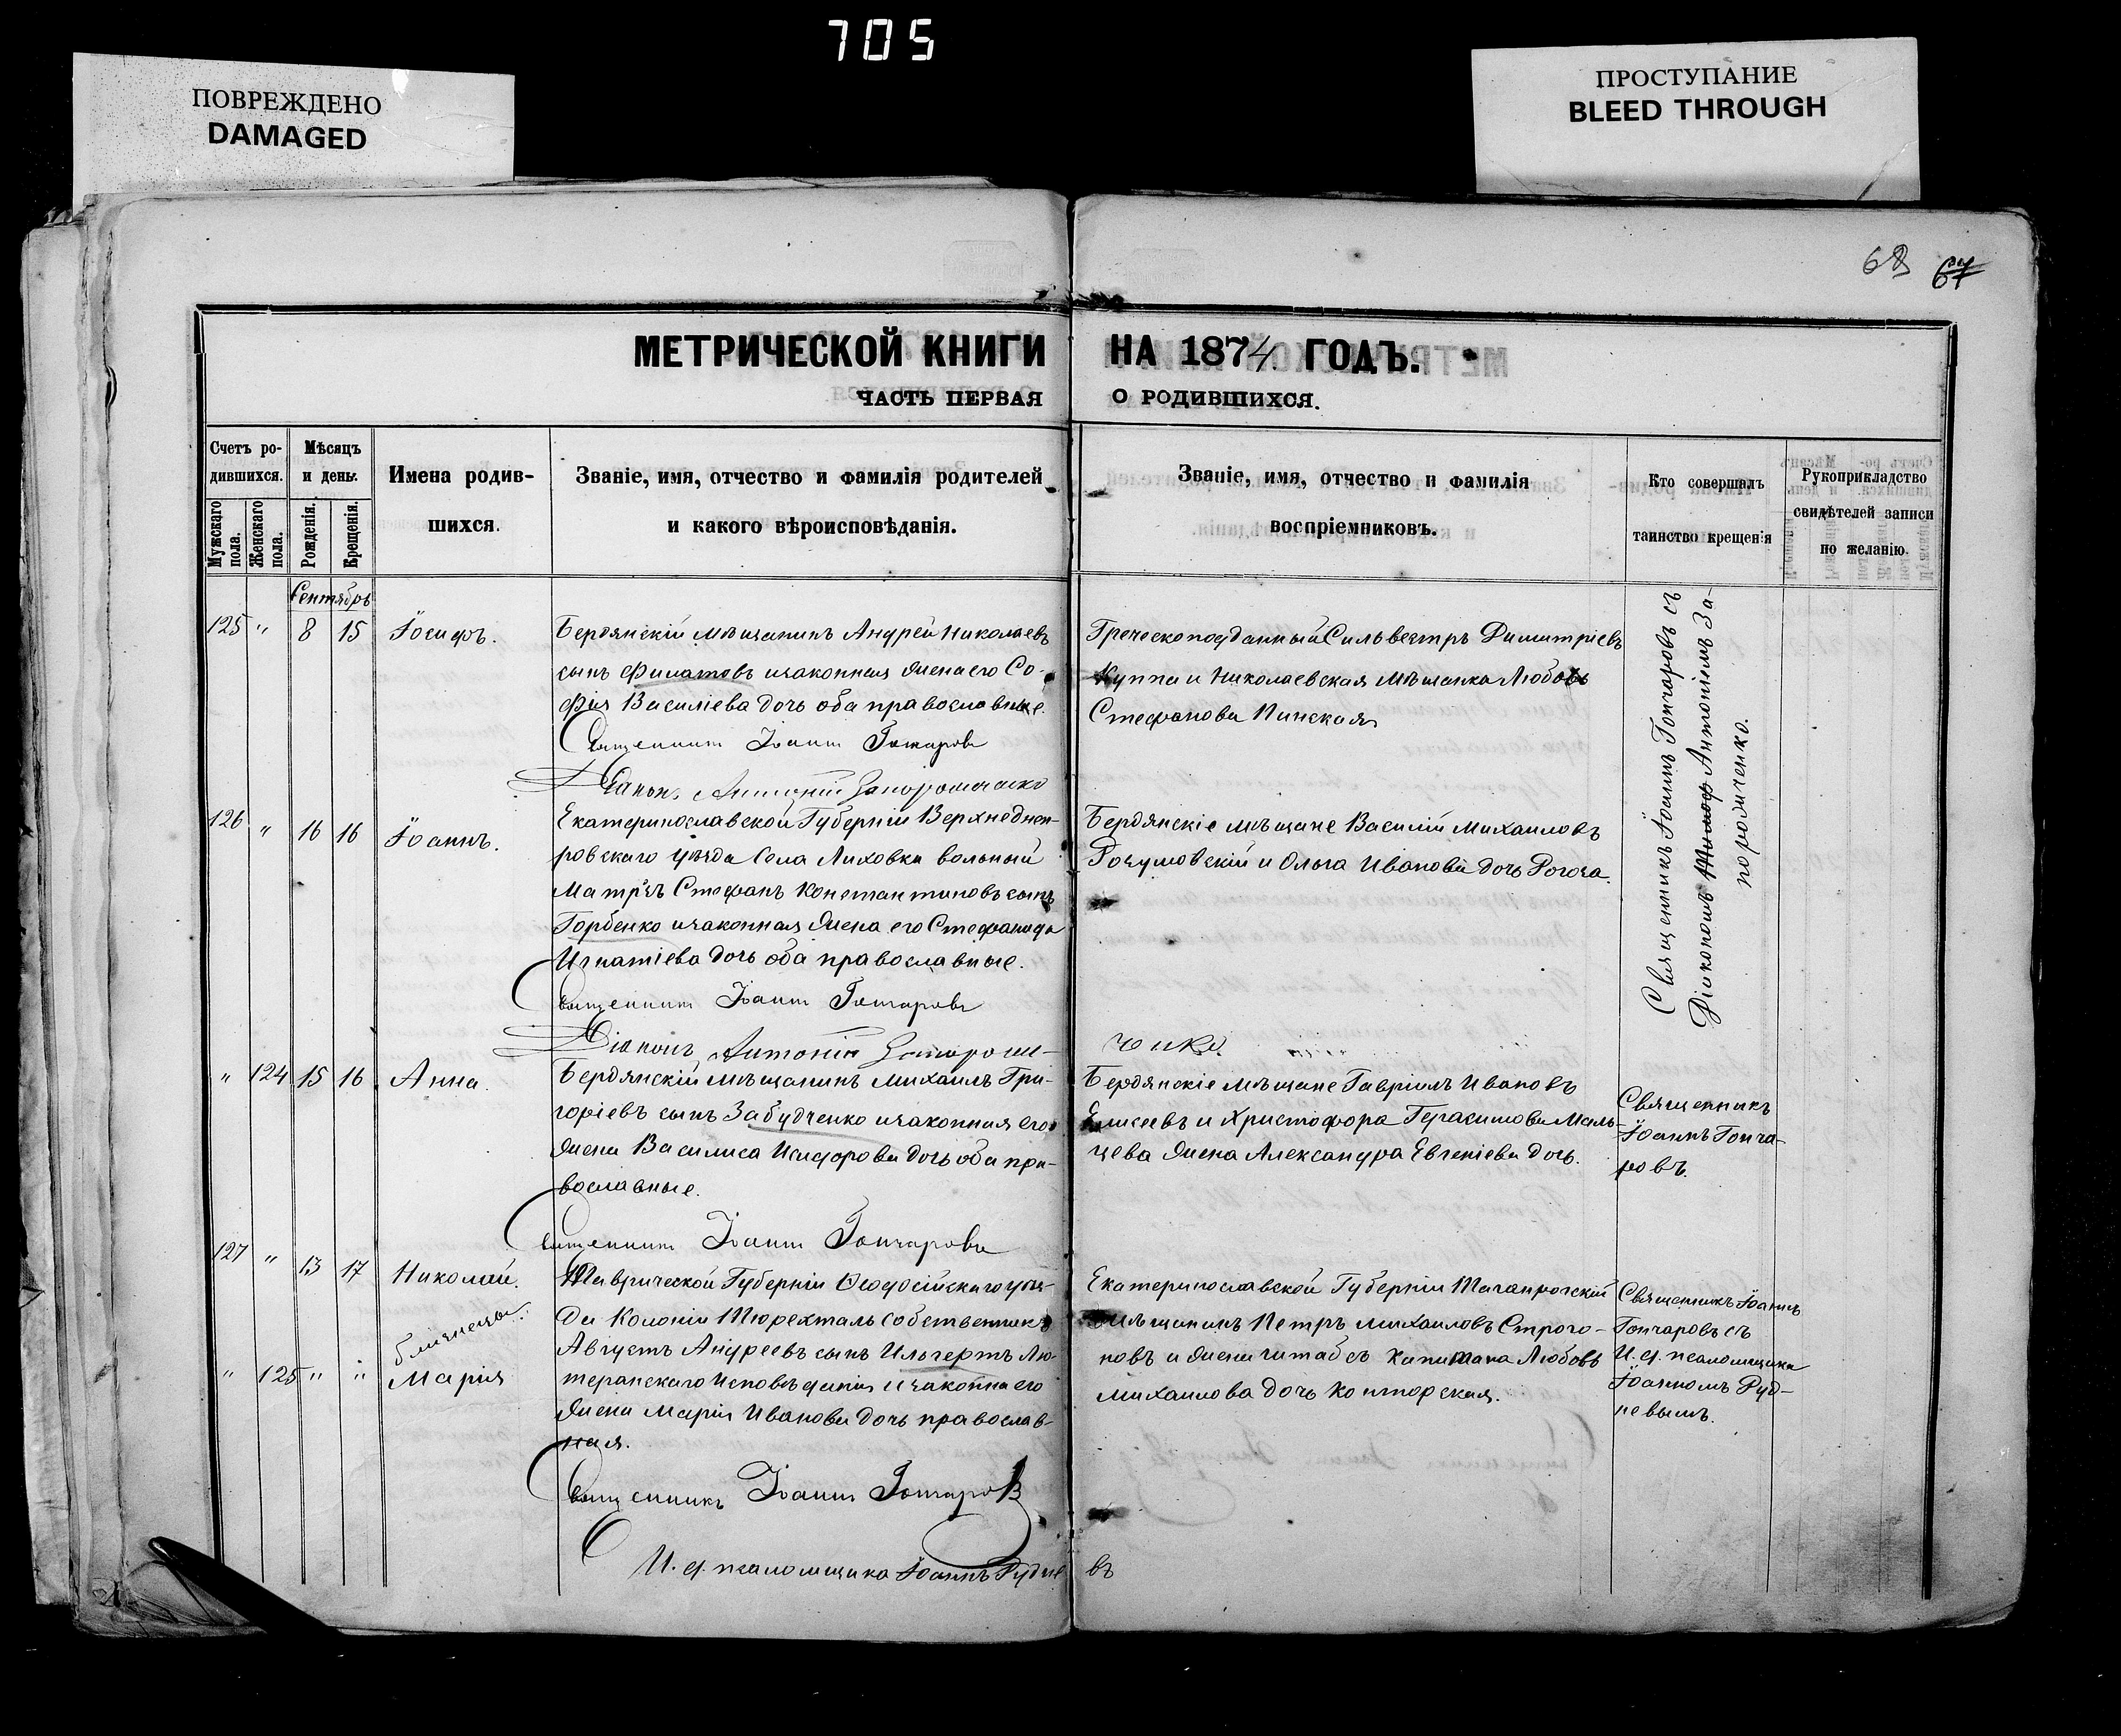 705
ПОВРЕЖДЕНО
DAMAGED
ПРОСТУПАНИЕ
BLEED THROUGH
68 67
МЕТРИЧЕСКОЙ КНИГИ НА 1874 ГОДЪ.
ЧАСТЬ ПЕРВАЯ О РОДИВШИХСЯ.
Счетъ ро-
дившихся.
Мужскаго пола.
Женскаго пола.
Мѣсяцъ
и день.
Рожденія.
Крещенія.
Имена родив-
шихся.
Званіе, имя, отчество и фамилія родителей
и какого вѣроисповѣданія.
Званіе, имя, отчество и фамилія
воспріемниковъ.
Кто совершалъ
таинство крещенія
Рукоприкладство
свидѣтелей записи
по желанію.
Сентябрь
125 " 8 15 Іосифъ.
Бердянскій мѣщанинъ Андрей Николаевъ
сынъ Филатовъ изаконная жена его Со-
фія Василіева дочь оба православные.
Священникъ Іоаннъ Гончаровъ
Діаконъ Антоній Запорожченко
Греческоподданный Сильвестръ Димитріевъ
Куппа и Николаевская мѣщанка Любовь
Стефанова Пинская
Священникъ Іоаннъ Гончаровъ съ
Діакономъ Антоніемъ За-
порожченко.
126 " 16 16 Іоаннъ.
Екатеринославской Губерніи Верхнеднеп-
ровскаго уѣзда Села Лиховки вольный
Матрзъ Стефанъ Константиновъ сынъ
Горбенко изаконная жена его Стефанида
Игнатіева дочь оба православные.
Священникъ Іоаннъ Гончаровъ
Діаконъ Антоній Запорож-
ченко
Бердянскіе мѣщане Василій Михаиловъ
Розумовскій и Ольга Иванова дочь Рогоза.
" 124 15 16 Анна.
Бердянскій мѣщанинъ Михаилъ Гри-
горіевъ сынъ Забудченко изаконная его
жена Василиса Исидорова дочь оба пра-
вославные.
Священникъ Іоаннъ Гончаровъ
Бердянскіе мѣщане Гавріилъ Ивановъ
Елисеевъ и Христофора Герасимова Маль-
цева жена Александра Евгеніева дочь.
Священникъ
Іоаннъ Гонча-
ровъ.
127 " 13 17 Николай.
близнецы.
" 125 " " Марія
Таврической Губерніи Ѳеодосійскаго уѣз-
да Колоніи Тюрехталь собственникъ
Августъ Андреевъ сынъ Ильгертъ Лю-
теранскаго Исповѣданія изаконна его
жена Марія Иванова дочь православ-
ная.
Священникъ Іоаннъ Гончаровъ
И. д. псаломщика Іоаннъ Рудневъ
Екатеринославской Губерніи Таганрогскій
мѣщанинъ Петръ Михаиловъ Строго-
новъ и жена штабсъ капитана Любовь
Михаилова дочь Конторская.
Священникъ Іоаннъ
Гончаровъ съ
И. д. псаломщика
Іоанномъ Руд-
невымъ.